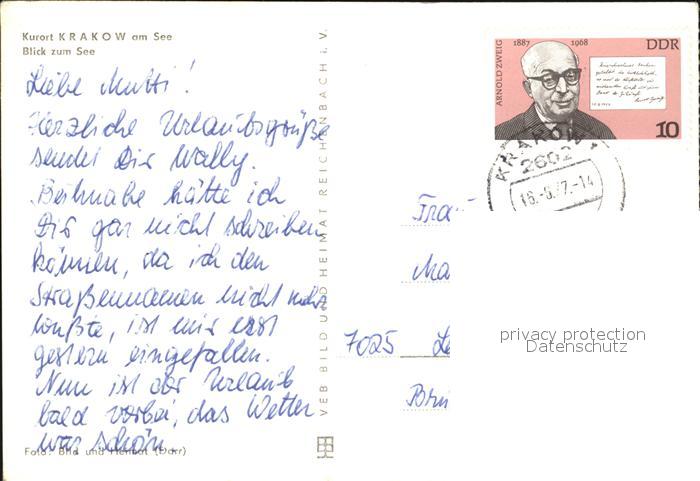 Kurort KRAKOW am See
Blick zum See
Liebe Mutti!
Herzliche Urlaubsgrüße
sendet Dir Wally.
Beihnahe hätte ich
Dir gar nicht schreiben
können, da ich den
Straßennamen nicht mehr
wußte, ist mir erst
gestern eingefallen.
Nun ist der Urlaub
bald vorbei, das Wetter
war schön.
Foto: Bild und Heimat (Darr)
VEB BILD UND HEIMAT REICHENBACH i. V.
ARNOLD ZWEIG
1887 1968
DDR
10
KRAKOW
2602
16.-9.77.-14
7025
privacy protection
Datenschutz